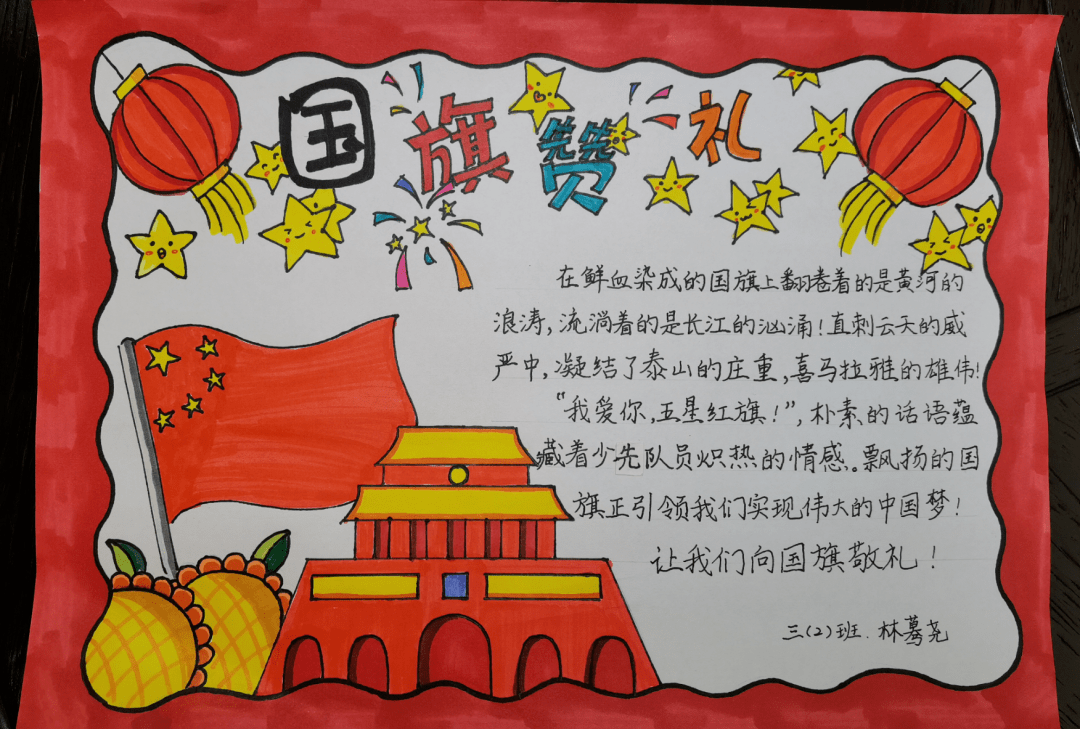 国旗赞礼
在鲜血染成的国旗上翻卷着的是黄河的
浪涛,流淌着的是长江的汹涌!直刺云天的威
严中,凝结了泰山的庄重,喜马拉雅的雄伟!
“我爱你,五星红旗!”,朴素的话语蕴
藏着少先队员炽热的情感。飘扬的国
旗正引领我们实现伟大的中国梦!
让我们向国旗敬礼!
三(2)班.林蓦尧